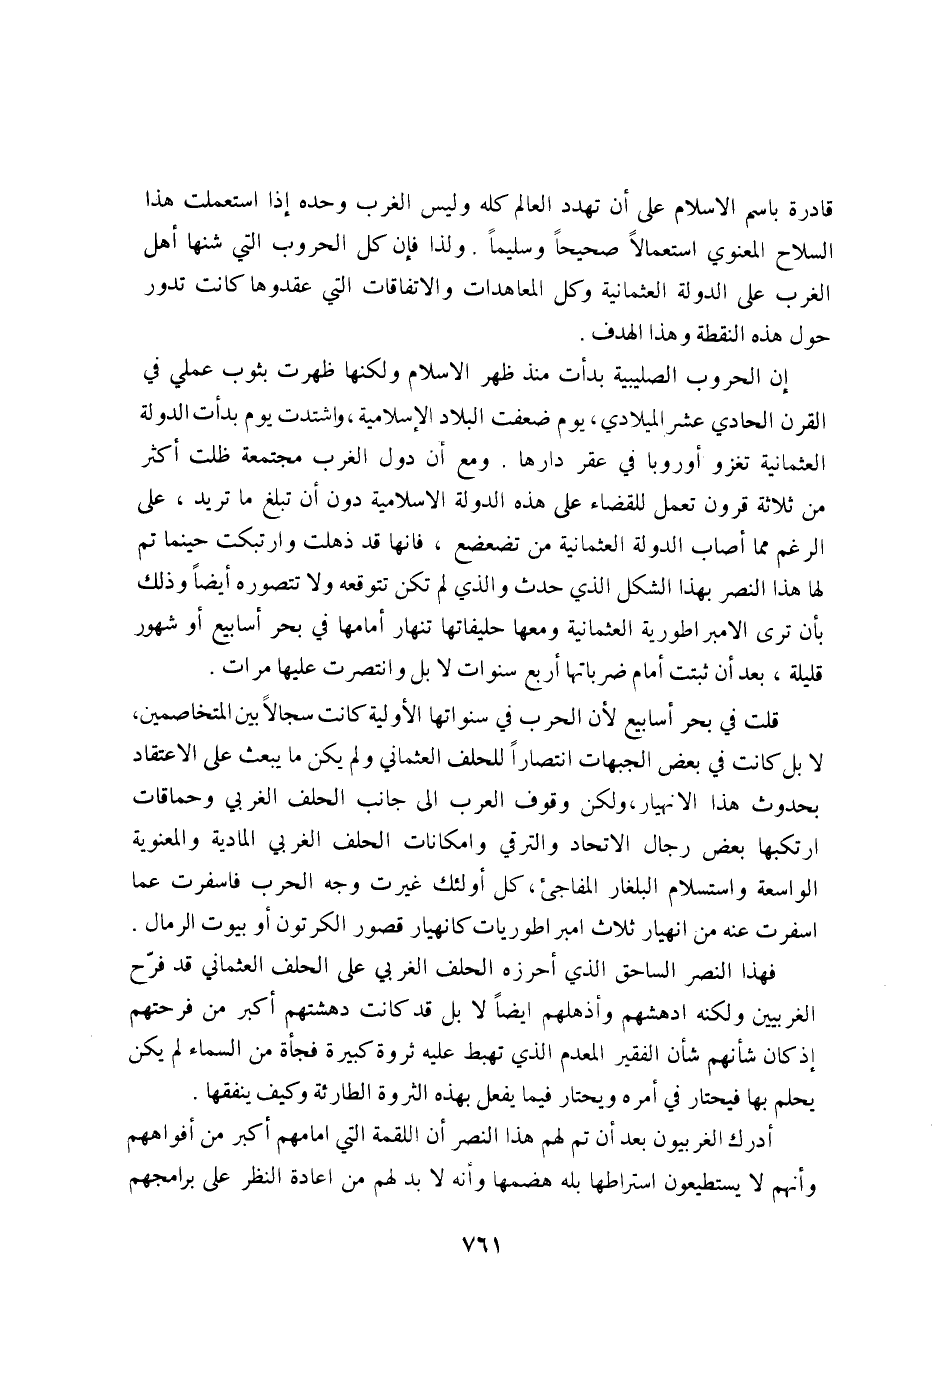 قادرة باسم الاسلام على أن تهدد العالم كله وليس الغرب وحده إذا استعملت هذا
السلاح المعنوي استعمالاً صحيحاً وسليماً . ولذا فإن كل الحروب التي شنها أهل
الغرب على الدولة العثمانية وكل المعاهدات والاتفاقات التي عقدوها كانت تدور
حول هذه النقطة وهذا الهدف .
إن الحروب الصليبية بدأت منذ ظهر الاسلام ولكنها ظهرت بثوب عملي في
القرن الحادي عشر الميلادي، يوم ضعفت البلاد الإسلامية، واشتدت يوم بدأت الدولة
العثمانية تغزو أوروبا في عقر دارها . ومع أن دول الغرب مجتمعة ظلت أكثر
من ثلاثة قرون تعمل للقضاء على هذه الدولة الاسلامية دون أن تبلغ ما تريد ، على
الرغم مما أصاب الدولة العثمانية من تضعضع ، فانها قد ذهلت وارتبكت حينما تم
لها هذا النصر بهذا الشكل الذي حدث والذي لم تكن تتوقعه ولا تتصوره أيضاً وذلك
بأن ترى الامبراطورية العثمانية ومعها حليفاتها تنهار أمامها في بحر أسابيع أو شهور
قليلة ، بعد أن ثبتت أمام ضرباتها أربع سنوات لا بل وانتصرت عليها مرات .
قلت في بحر أسابيع لأن الحرب في سنواتها الأولية كانت سجالاً بين المتخاصمين،
لا بل كانت في بعض الجبهات انتصاراً للحلف العثماني ولم يكن ما يبعث على الاعتقاد
بحدوث هذا الانهيار، ولكن وقوف العرب الى جانب الحلف الغربي وحماقات
ارتكبها بعض رجال الاتحاد والترقي وامكانات الحلف الغربي المادية والمعنوية
الواسعة واستسلام البلغار المفاجئ، كل أولئك غيرت وجه الحرب فاسفرت عما
اسفرت عنه من انهيار ثلاث امبراطوريات كانهيار قصور الكرتون أو بيوت الرمال .
فهذا النصر الساحق الذي أحرزه الحلف الغربي على الحلف العثماني قد فرّح
الغربيين ولكنه ادهشهم وأذهلهم ايضاً لا بل قد كانت دهشتهم أكبر من فرحتهم
إذ كان شأنهم شأن الفقير المعدم الذي تهبط عليه ثروة كبيرة فجأة من السماء لم يكن
يحلم بها فيحتار في أمره ويحتار فيما يفعل بهذه الثروة الطارئة وكيف ينفقها .
أدرك الغربيون بعد أن تم لهم هذا النصر أن اللقمة التي امامهم أكبر من أفواههم
وأنهم لا يستطيعون استراطها بله هضمها وأنه لا بد لهم من اعادة النظر على برامجهم
٧٦١